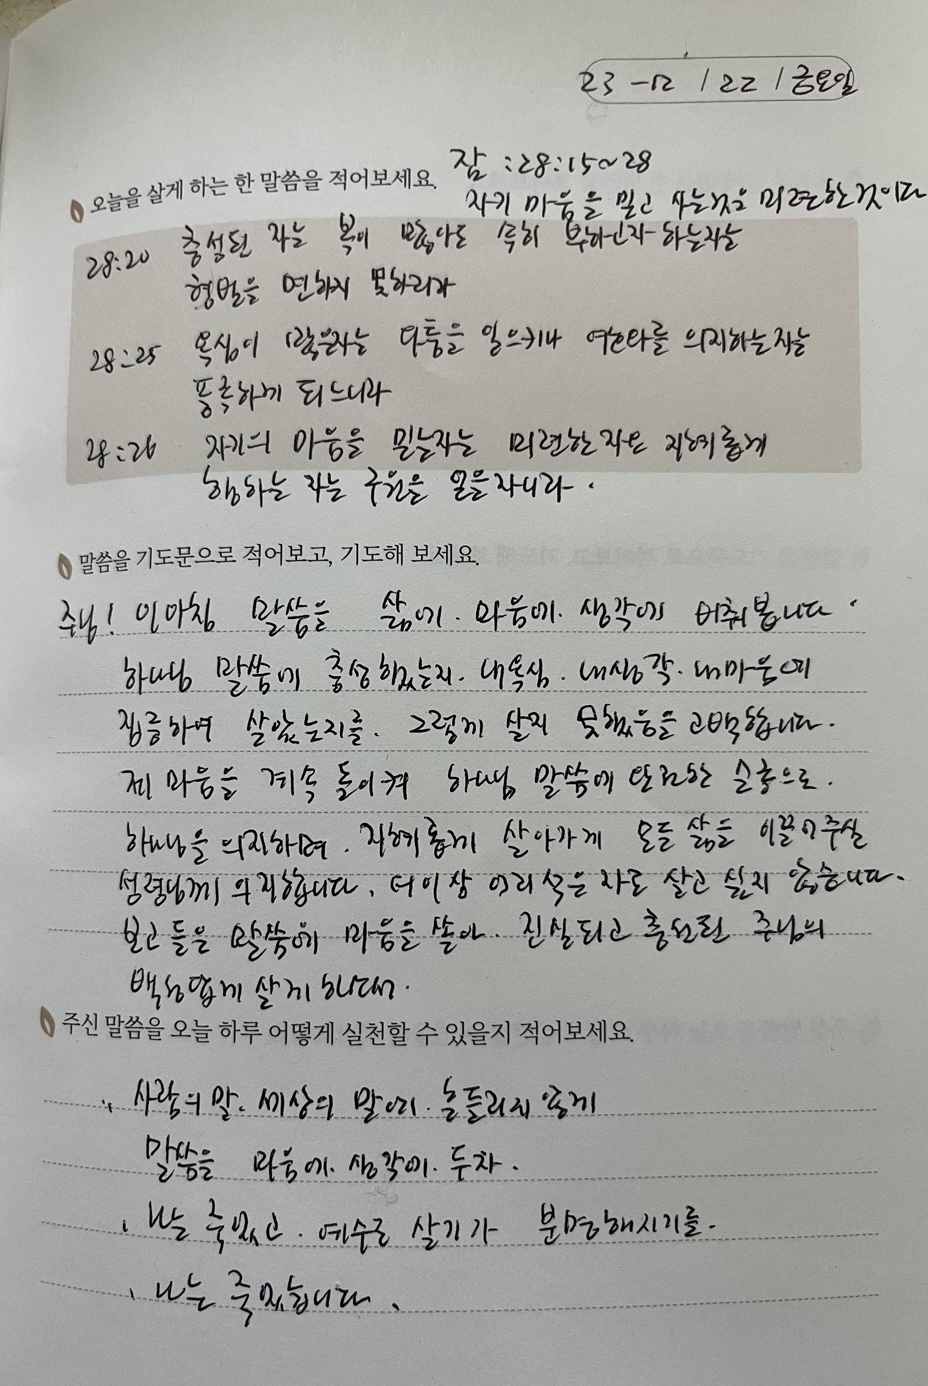 23-12 / 22 / 금요일
잠 :28:15~28
오늘을 살게 하는 한 말씀을 적어보세요.
자기 마음을 믿고 사는것은 미련한것이다
28:20 충성된 자는 복이 많아도 속히 부하고자 하는자는
형벌을 면하지 못하리라
28:25 욕심이 많은자는 다툼을 일으키나 여호와를 의지하는자는
풍족하게 되느니라
28:26 자기의 마음을 믿는자는 미련한자요 지혜롭게
행하는 자는 구원을 얻을자니라.
말씀을 기도문으로 적어보고, 기도해 보세요.
주님! 이아침 말씀을 삶에. 마음에. 생각에 비춰봅니다.
하나님 말씀에 충성했는지. 내욕심. 내생각. 내마음에
집중하며 살았는지를. 그렇게 살지 못했음을 고백합니다.
제 마음을 계속 돌이켜 하나님 말씀에 온전한 순종으로.
하나님을 의지하며. 지혜롭게 살아가게 모든 삶을 이끌어주실
성령님께 의지합니다. 더이상 어리석은 자로 살고 싶지 않습니다.
보고 들은 말씀에 마음을 쏟아. 진실되고 충성된 주님의
백성답게 살게 하소서.
주신 말씀을 오늘 하루 어떻게 실천할 수 있을지 적어보세요.
사람의 말. 세상의 말에. 흔들리지 않게
말씀을 마음에. 생각에. 두자.
나는 죽었고. 예수로 살기가 분명해지기를.
나는 죽었습니다.